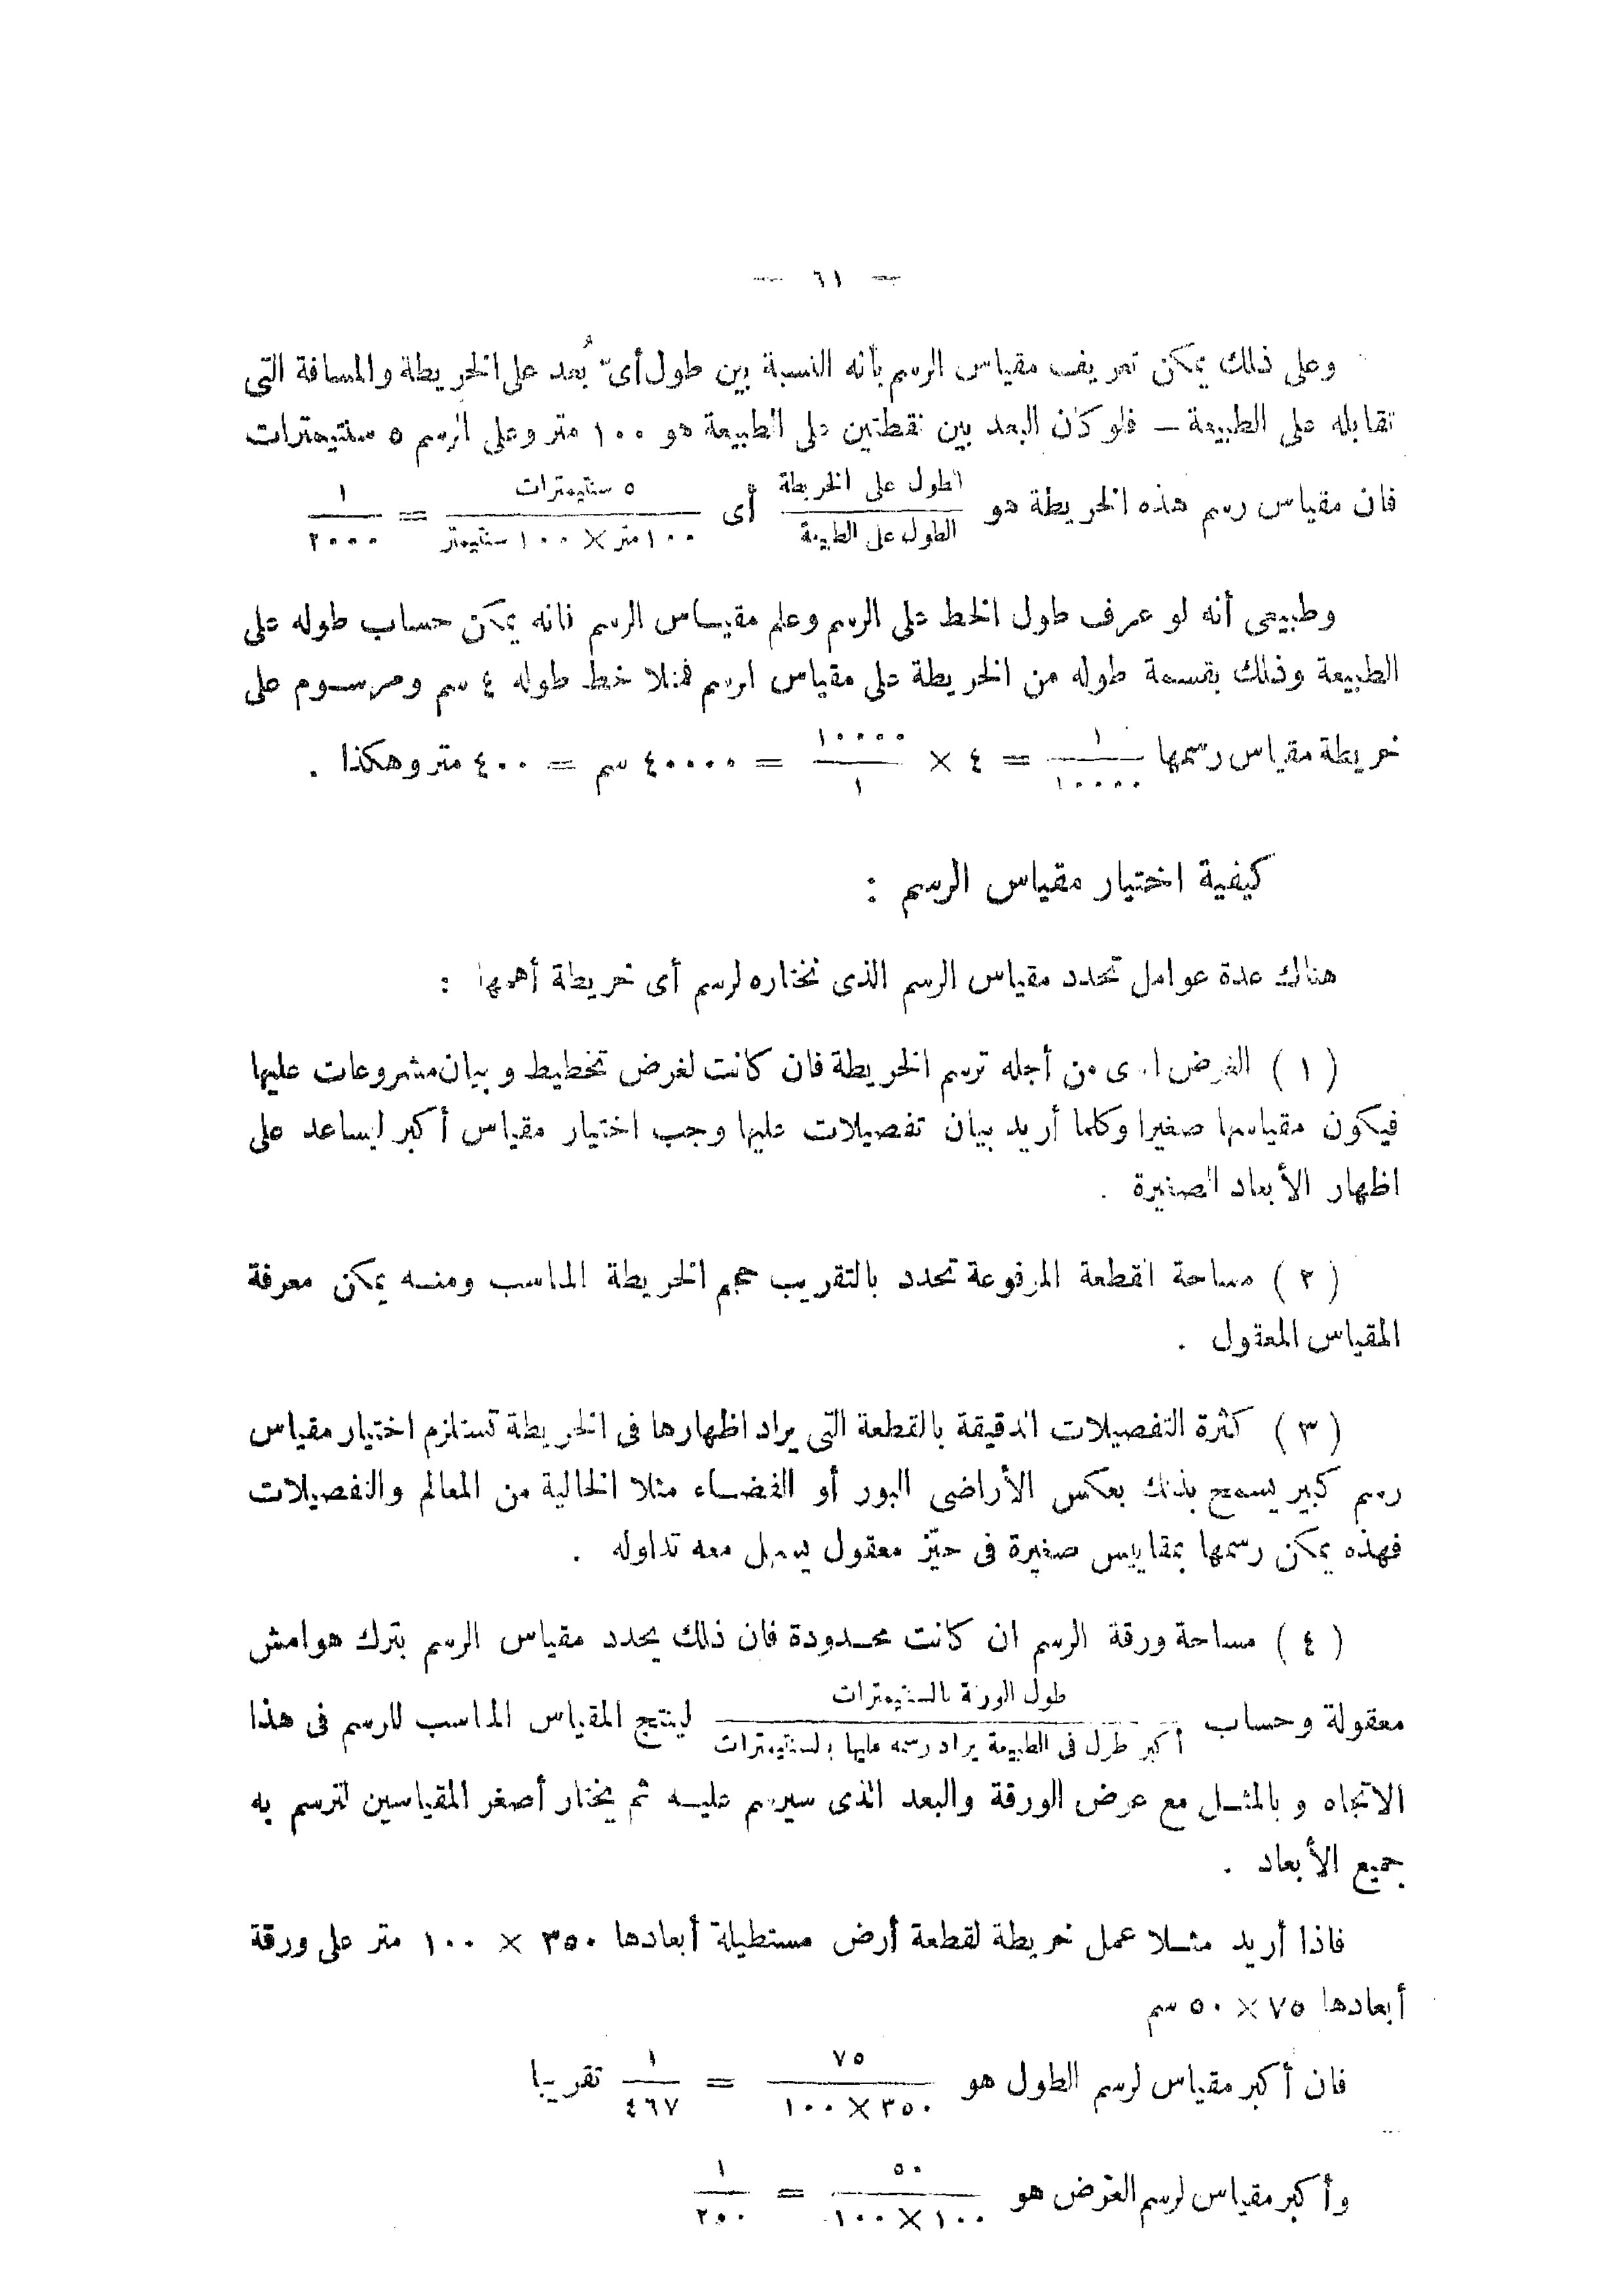 — ٦١ —
وعلى ذلك يمكن تعريف مقياس الرسم بأنه النسبة بين طول أىّ بُعد على الخريطة والمسافة التى
تقابله على الطبيعة — فلو كان البعد بين نقطتين على الطبيعة هو ١٠٠ متر وعلى الرسم ٥ سنتيمترات
فان مقياس رسم هذه الخريطة هو الطول على الخريطة / الطول على الطبيعة أى ٥ سنتيمترات / ١٠٠ متر × ١٠٠ سنتيمتر = ١ / ٢٠٠٠
وطبيعى أنه لو عرف طول الخط على الرسم وعلم مقياس الرسم فانه يمكن حساب طوله على
الطبيعة وذلك بقسمة طوله من الخريطة على مقياس الرسم فمثلا خط طوله ٤ سم ومرسوم على
خريطة مقياس رسمها ١ / ١٠٠٠٠ = ٤ × ١٠٠٠٠ / ١ = ٤٠٠٠٠ سم = ٤٠٠ متر وهكذا .
كيفية اختيار مقياس الرسم :
هناك عدة عوامل تحدد مقياس الرسم الذى نختاره لرسم أى خريطة أهمها :
( ١ ) الغرض الذى من أجله ترسم الخريطة فان كانت لغرض تخطيط وبيان مشروعات عليها
فيكون مقياسها صغيرا وكلما أريد بيان تفصيلات عليها وجب اختيار مقياس أكبر ليساعد على
اظهار الأبعاد الصغيرة .
( ٢ ) مساحة القطعة المرفوعة تحدد بالتقريب حجم الخريطة المناسب ومنه يمكن معرفة
المقياس المعقول .
( ٣ ) كثرة التفصيلات الدقيقة بالقطعة التى يراد اظهارها فى الخريطة تستلزم اختيار مقياس
رسم كبير يسمح بذلك بعكس الأراضى البور أو الفضاء مثلا الخالية من المعالم والتفصيلات
فهذه يمكن رسمها بمقاييس صغيرة فى حيّز معقول يسهل معه تداوله .
( ٤ ) مساحة ورقة الرسم ان كانت محدودة فان ذلك يحدد مقياس الرسم بترك هوامش
معقولة وحساب طول الورقة بالسنتيمترات / أكبر طول فى الطبيعة يراد رسمه عليها بالسنتيمترات لينتج المقياس المناسب للرسم فى هذا
الاتجاه وبالمثل مع عرض الورقة والبعد الذى سيرسم عليه ثم يختار أصغر المقياسين لترسم به
جميع الأبعاد .
فاذا أريد مثلا عمل خريطة لقطعة أرض مستطيلة أبعادها ٣٥٠ × ١٠٠ متر على ورقة
أبعادها ٧٥ × ٥٠ سم
فان أكبر مقياس لرسم الطول هو ٧٥ / ٣٥٠ × ١٠٠ = ١ / ٤٦٧ تقريبا
وأكبر مقياس لرسم العرض هو ٥٠ / ١٠٠ × ١٠٠ = ١ / ٢٠٠